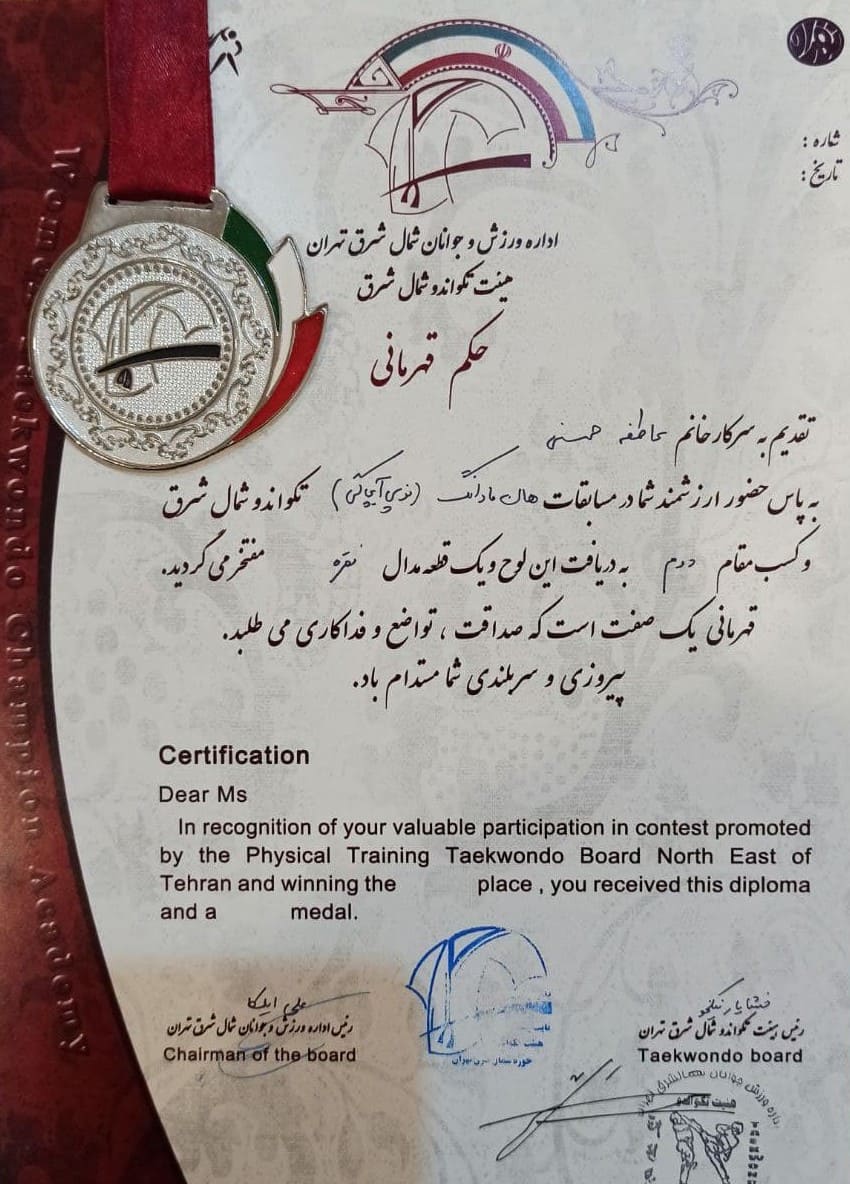 شماره :
تاریخ :
اداره ورزش و جوانان شمال شرق تهران
هیئت تکواندو شمال شرق
حکم قهرمانی
تقدیم به سرکار خانم عاطفه حسنی
به پاس حضور ارزشمند شما در مسابقات هان مادانگ تکواندو شمال شرق
و کسب مقام دوم به دریافت این لوح و یک قطعه مدال نقره مفتخر می گردید.
قهرمانی یک صفت است که صداقت ، تواضع و فداکاری می طلبد.
پیروزی و سربلندی شما مستدام باد.
Certification
Dear Ms
In recognition of your valuable participation in contest promoted
by the Physical Training Taekwondo Board North East of
Tehran and winning the place , you received this diploma
and a medal.
رئیس هیئت تکواندو شمال شرق تهران
Taekwondo board
رئیس اداره ورزش و جوانان شمال شرق تهران
Chairman of the board
هیئت تکواندو
Taekwondo Champion Academy